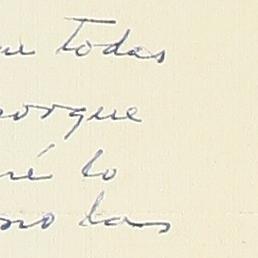 ue todas
porque
né lo
no las